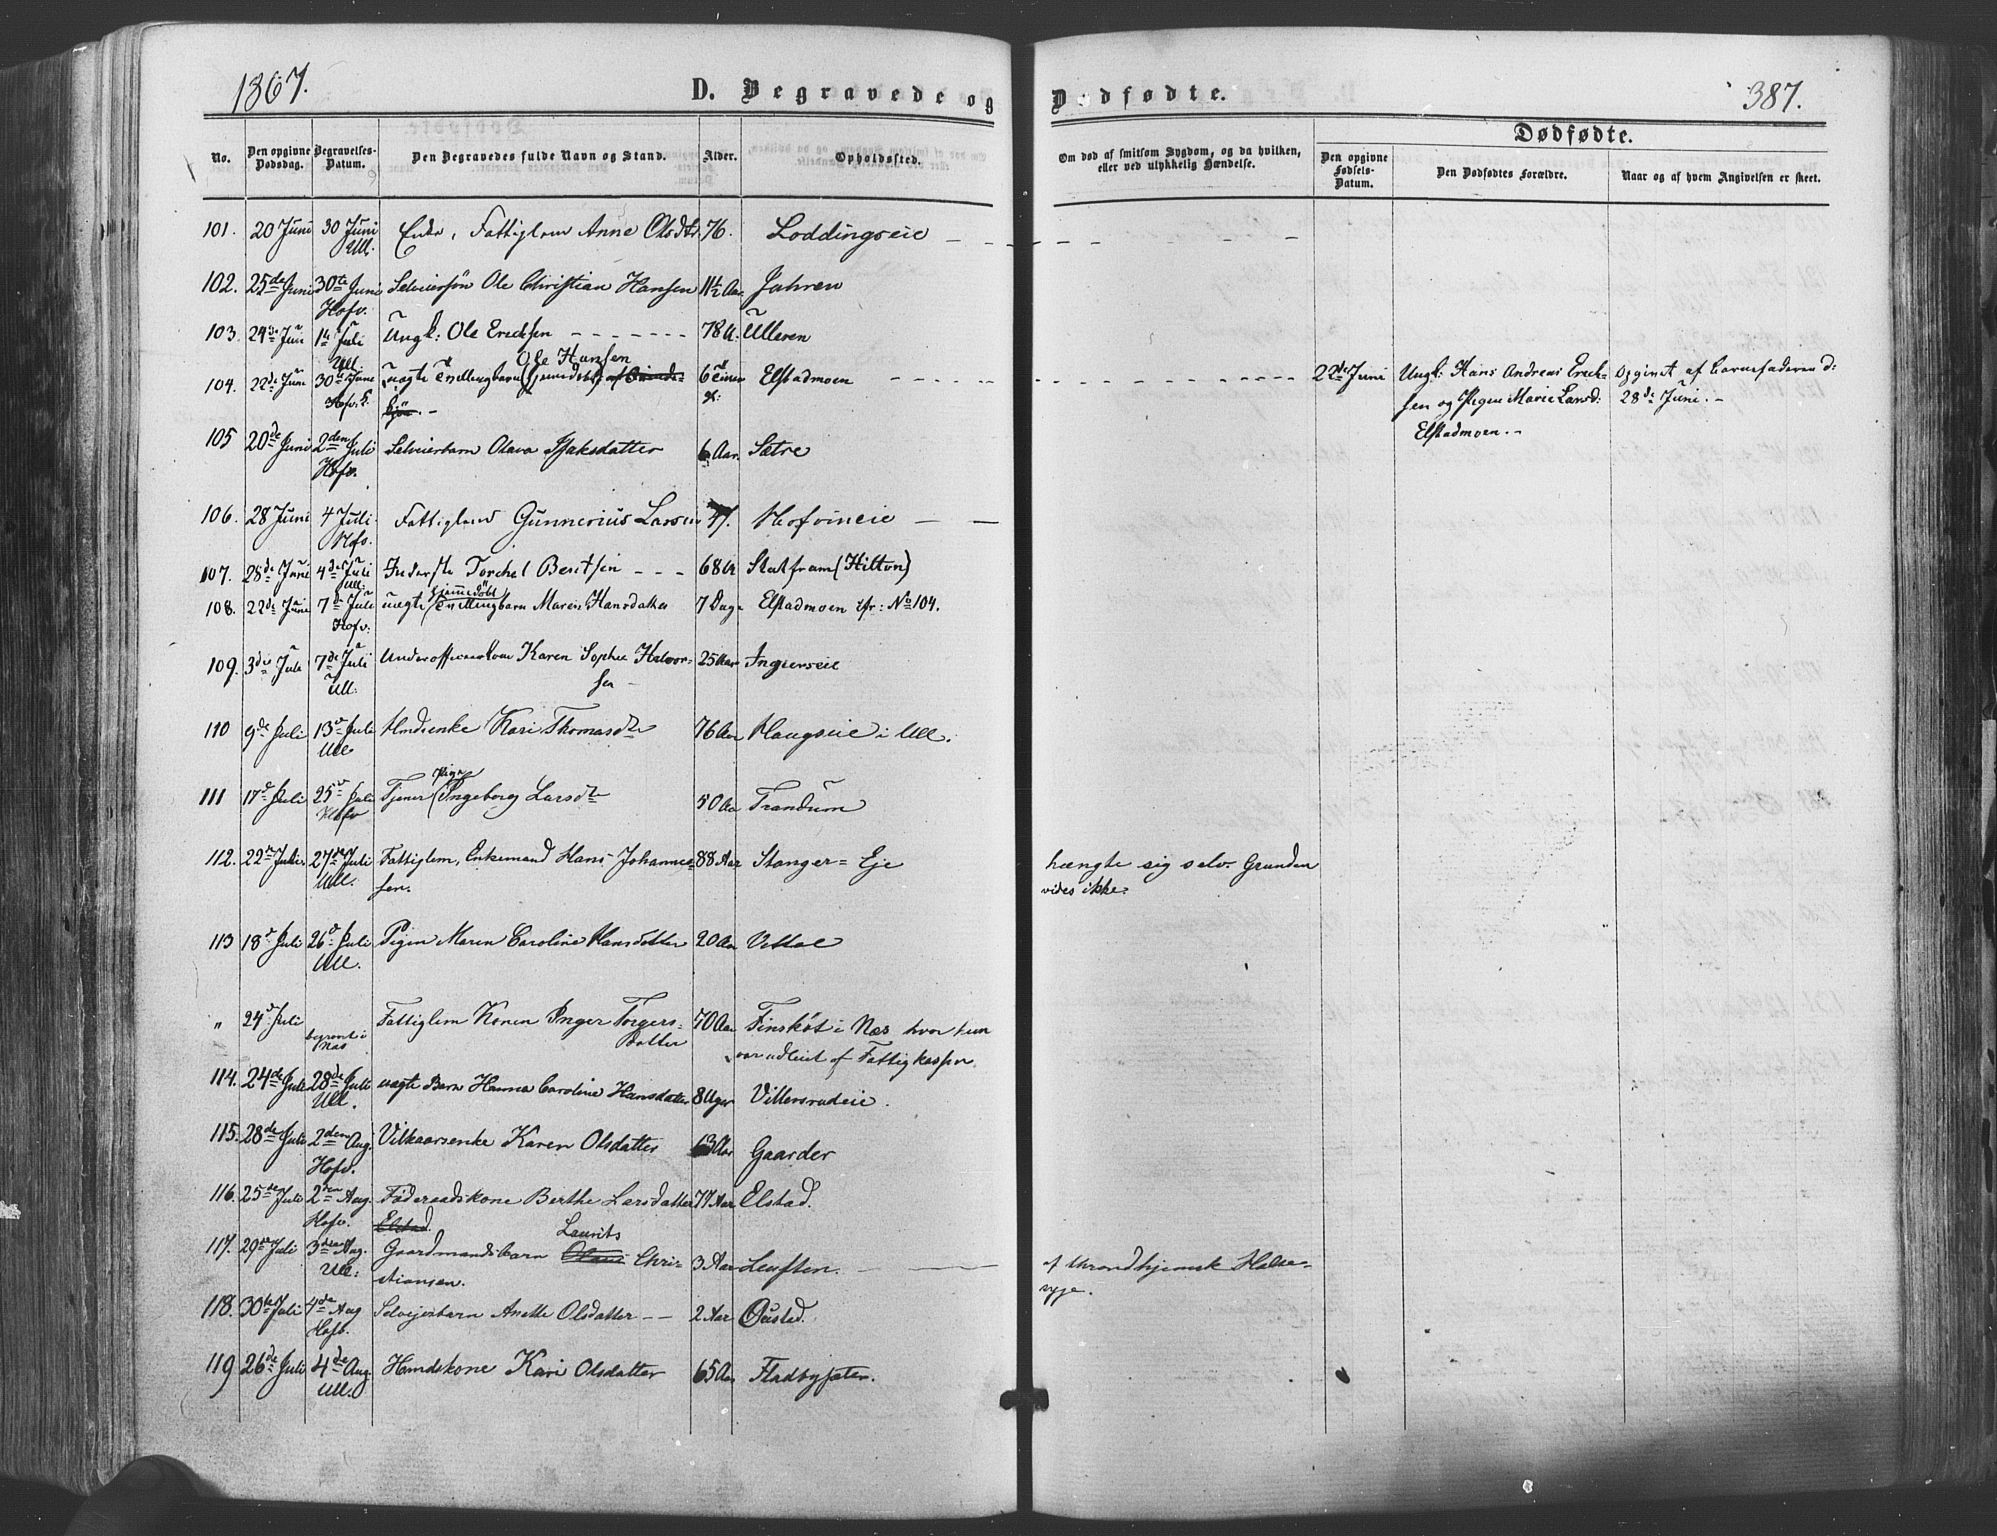 1867.
D. Begravede og Dødfødte.
387.
Dødfødte.
No.
Den opgivne Dødsdag.
Begravelses-Datum.
Den Begravedes fulde Navn og Stand.
Alder.
Opholdssted.
Om død af smitsom Sygdom, og da hvilken, eller ved ulykkelig Hændelse.
Den opgivne Fødsels-Datum.
Den Dødfødtes Forældre.
Naar og af hvem Angivelsen er skeet.
101. 20 Juni 30 Juni Enke, Fattiglem Anne Olsdtr 76. Loddingseie
Ull.
102. 25de Juni 30te Juni Selveiersøn Ole Christian Hansen 11½ Aar Jahren
Hofv.
103. 24de Juni 1ste Juli Ungk: Ole Ericksen 78 A: Ulleren
Ull.
Ole Hansen
104. 22de Juni 30te Juni uægte Tvillingbarn (hjemmedøbt) 6 Timer Elstadmoen 22de Juni Ungk: Hans Andreas Erick- Opgivet af barnefaderen d:
Hofv. k. gl: sen og Pigen Marie Larsd: 28de Juni. -
Elstadmoen. -
105 20de Juni 2den Juli Selveierbarn Olava Isaksdatter 6 Aar. Sætre
Hofv.
106. 28 Juni 4 Juli Fattiglem Gunnerius Larsen 47. Hofvineie
Hofv.
107. 28de Juni 4de Juli Inderste Torchel Berntsen 68 A Statfram (Hilton)
Ull:
hjemmedøbt
108. 22de Juni 7de Juli uægte (Tvillingbarn Maren Hansdatter 7 Dage Elstadmoen cfr: No 104.
Hofv:
109. 3de Juli 7de Juli Underofficerskone Karen Sophie Halvor- 25 Aar Angerseie
Ull. sen -
110 9de Juli 13de Juli Huusenke Kari Thomasdtr 76 Aar Haugseie i Ull.
Ull
Pige
111 17de Juli 25de Juli Tjener (Ingeborg Larsdtr 50 Aar Trandum
Hofv
112. 22de Juli 27de Juli Fattiglem, Enkemand Hans Johannes- 88 Aar Stanger= Eje hængte sig selv. Grunden
Ull. sen. vides ikke.
113 18de Juli 26de Juli Pigen Maren Caroline Hansdatter 20 Aar
Ull.
" 24de Juli Fattiglem Konen Inger Torgers- 70 Aar Finskót i Næs hvor hun
begravet i Næs datter var udleiet af Fattigkassen
114. 24de Juli 28de Juli uægte Barn Hanna Caroline Hansdatter 8 Uger Villersrudeie.
Ull.
115. 28de Juli 2den Aug. Vilkaarsenke Karen Olsdatter 63 Aar Gaarder
Hofv.
116. 25de Juli 2den Aug. Føderaadskone Berthe Larsdatter 77 Aar Elstad.
Hofv. Elstad.
Laurits
117. 29de Juli 3die Aug. Gaardmandsbarn Chri- 3 Aar Leuften. af throndhjemsk Halse-
Ull: stiansen. syge.
118. 30te Juli 4de Aug Selvejerbarn Anette Olsdatter 2 Aar Ørstad.
Hofv.
119 26de Juli 4de Aug. Huuskone Kari Olsdatter 65 Aar Fladbysæter.
Ull.